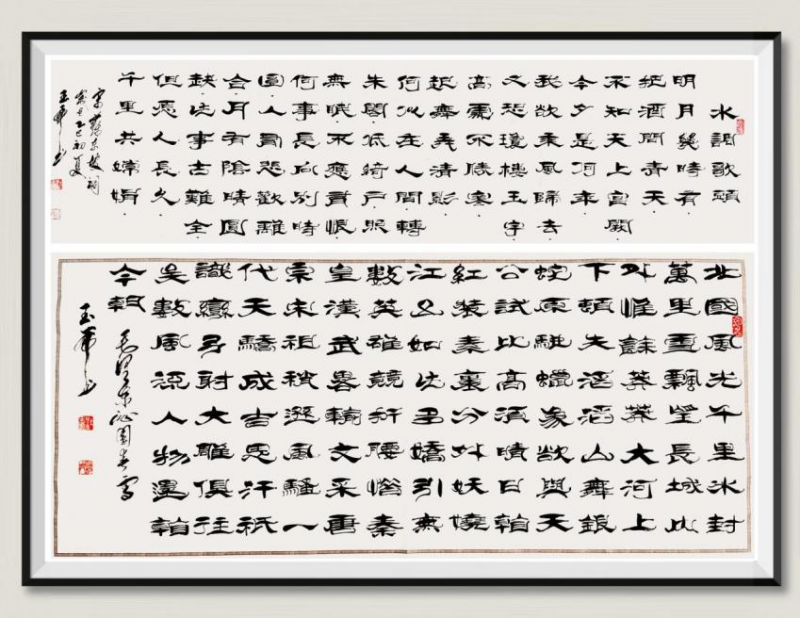 水調歌頭
明月幾時有
把酒問青天
不知天上宮闕
今夕是何年
我欲乘風歸去
又恐瓊樓玉宇
高處不勝寒
起舞弄清影
何似在人間轉
朱閣低綺戶照
無眠不應有恨
何事長向別時
圓人有悲歡離
合月有陰晴圓
缺此事古難全
但愿人長久
千里共嬋娟
宋蘇東坡詞
乙巳初夏
北國風光千里冰封
萬里雪飄望長城內
外惟餘莽莽大河上
下頓失滔滔山舞銀
蛇原馳蠟象欲與天
公試比高須晴日看
紅裝素裹分外妖嬈
江山如此多嬌引無
數英雄競折腰惜秦
皇漢武略輸文采唐
宗宋祖稍遜風騷一
代天驕成吉思汗祇
識彎弓射大雕俱往
矣數風流人物還看
今朝
毛澤東沁園春雪